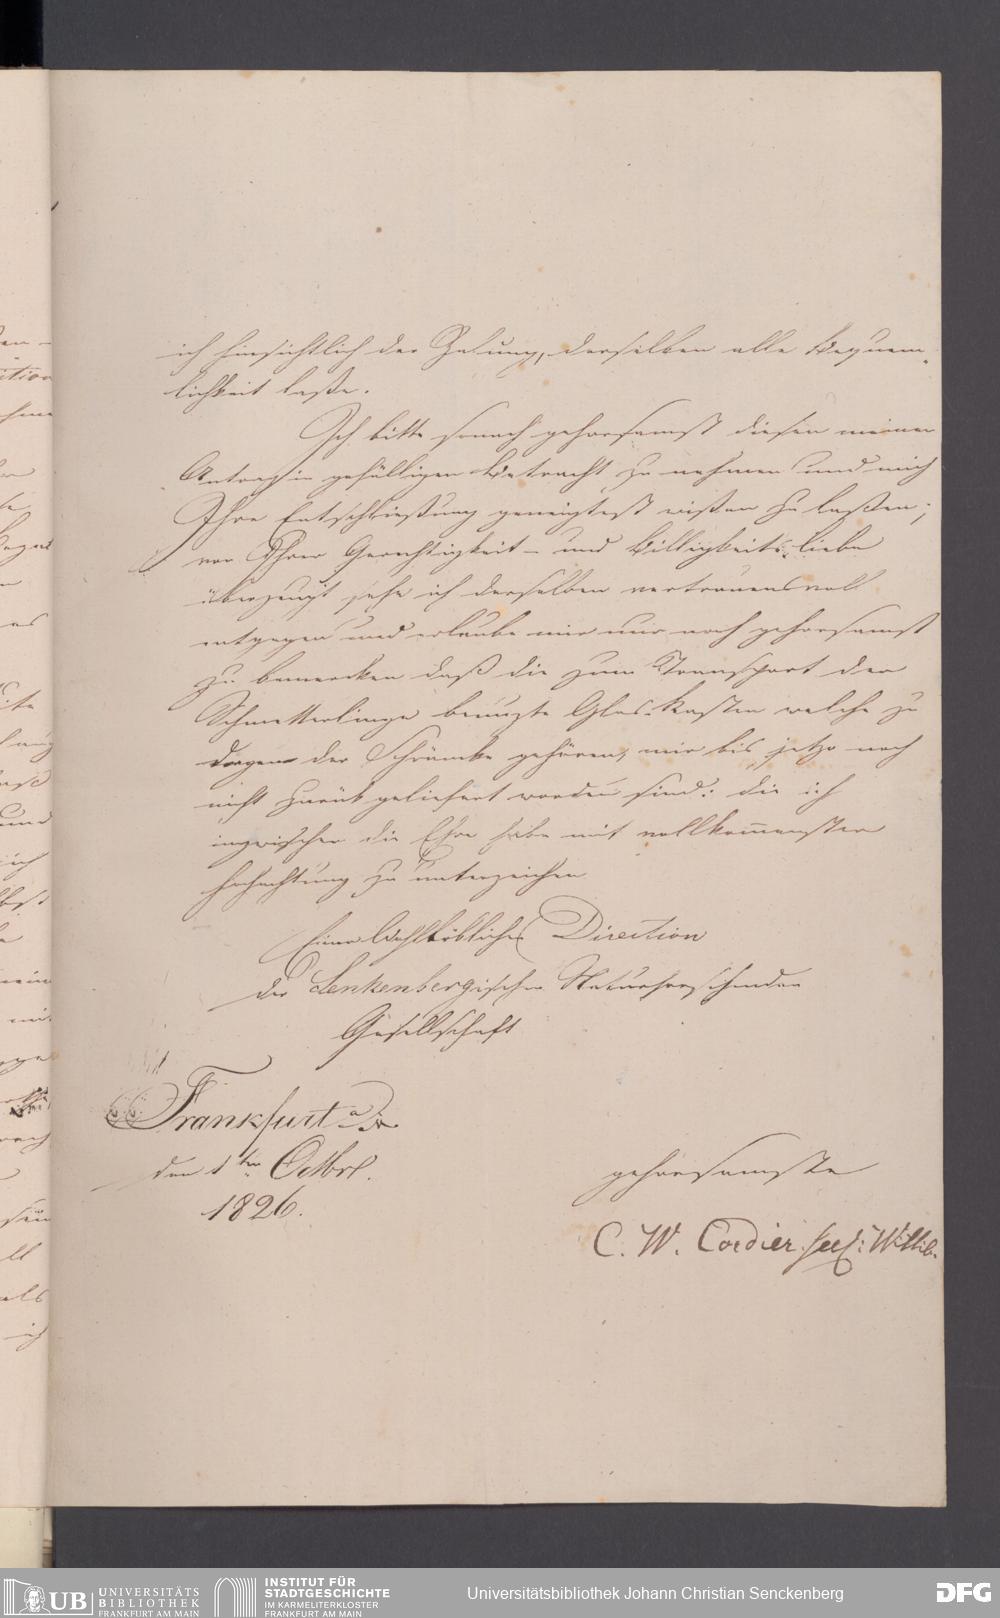 ich hinsichtlich der Zalung, derselben alle Bequem-
lichkeit laße.
Ich bitte sonach gehorsamst diesen meinen
Antrag in gefälligen Betracht zu nehmen und mich
Ihre Entschließung geneigtest wißen zu laßen;
von Ihrer Gerechtigkeit- und Billigkeits-liebe
überzeugt sehe ich derselben vertrauensvoll
entgegen und erlaube mir nur noch gehorsamst
zu bemercken daß die zum Transport der
Schmetterlinge benuzte Glas-Kasten welche zu
der Schränke gehören, mir bis jetzo noch
nicht zurük geliefert worden sind: die ich
inzwischen die Ehre habe mit vollkommenster
Hochachtung zu unterzeichen
Einer Wohllöblichen Direction
der Senkenbergischen Naturforschenden
Gesellschaft
Frankfurt a
den 1ten Octbr.
1826.
gehorsamste
C. W. Cordier seel: Wittib.
UB UNIVERSITÄTS
BIBLIOTHEK
FRANKFURT AM MAIN
INSTITUT FÜR
STADTGESCHICHTE
IM KARMELITERKLOSTER
FRANKFURT AM MAIN
Universitätsbibliothek Johann Christian Senckenberg
DFG